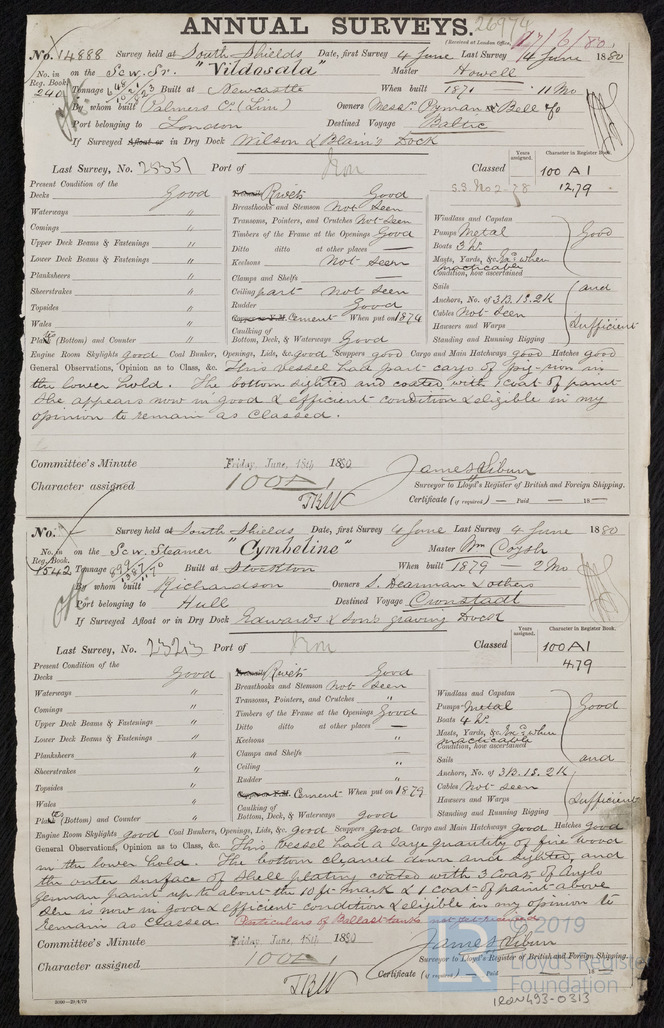 ANNUAL SURVEYS. 26974
(Received at London Office, 17/6/80)
No. 14888 Survey held at South Shields Date, first Survey 4 June Last Survey 14 June 1880
No. in Reg. Book. on the Scw. Sr. "Vildosala" Master Howell
240 Tonnage Built at Newcastle When built 1871 11 Mo
By whom built Palmers Co. (Lim) Owners Messrs. Pyman Bell & Co
Port belonging to London Destined Voyage Baltic
If Surveyed Afloat or in Dry Dock Wilson & Blain's Dock
Years assigned. Character in Register Book.
Last Survey, No. 28551 Port of Iron Classed 100 A1
S.S. No 2-78 12.79
Present Condition of the
Decks Good Rivets Good
Waterways " Breasthooks and Stemson Not Seen
Comings " Transoms, Pointers, and Crutches Not Seen
Upper Deck Beams & Fastenings " Timbers of the Frame at the Openings Good
Lower Deck Beams & Fastenings " Ditto ditto at other places —
Planksheers " Keelsons Not Seen
Sheerstrakes " Clamps and Shelfs —
Topsides " Ceiling part Not Seen
Wales " Rudder Good
Plate (Bottom) and Counter " Cement When put on 1879
Caulking of Bottom, Deck, & Waterways Good
Windlass and Capstan
Pumps Metal Good
Boats 3 Wt.
Masts, Yards, &c. In & when practicable
Condition, how ascertained
Sails and
Anchors, No. of 3B. 1S. 2K
Cables Not Seen
Hawsers and Warps Sufficient
Standing and Running Rigging
Engine Room Skylights good Coal Bunker, Openings, Lids, &c. good Scuppers good Cargo and Main Hatchways good Hatches good
General Observations, Opinion as to Class, &c. This vessel had part cargo of pig-iron in
the lower hold. The bottom sighted and coated with 1 coat of paint
She appears now in good & efficient condition & eligible in my
opinion to remain as classed.
Committee's Minute Friday, June, 18th 1880
Character assigned 100A1
Surveyor to Lloyd's Register of British and Foreign Shipping.
Certificate (if required) — Paid — 18 —
No. Survey held at South Shields Date, first Survey 4 June Last Survey 4 June 1880
No. in Reg. Book. on the Scw. Steamer "Cymbeline" Master Wm Coysh
1542 Tonnage Built at Stockton When built 1879 — 2 Mo
By whom built Richardson Owners S. Dearman & others
Port belonging to Hull Destined Voyage Cronstadt
If Surveyed Afloat or in Dry Dock Edwards & Son's graving Dock
Years assigned. Character in Register Book.
Last Survey, No. 23213 Port of Iron Classed 100 A1
4.79
Present Condition of the
Decks Good Rivets Good
Waterways " Breasthooks and Stemson Not Seen
Comings " Transoms, Pointers, and Crutches "
Upper Deck Beams & Fastenings " Timbers of the Frame at the Openings Good
Lower Deck Beams & Fastenings " Ditto ditto at other places —
Planksheers " Keelsons "
Sheerstrakes " Clamps and Shelfs —
Topsides " Ceiling "
Wales " Rudder "
Plate (Bottom) and Counter " Cement When put on 1879
Caulking of Bottom, Deck, & Waterways good
Windlass and Capstan
Pumps Metal Good
Boats 4 Wt.
Masts, Yards, &c. In & when practicable
Condition, how ascertained
Sails and
Anchors, No. of 3B. 1S. 2K
Cables Not Seen
Hawsers and Warps Sufficient
Standing and Running Rigging
Engine Room Skylights good Coal Bunkers, Openings, Lids, &c. good Scuppers good Cargo and Main Hatchways good Hatches good
General Observations, Opinion as to Class, &c. This vessel had a large quantity of fire wood
in the lower hold. The bottom cleaned down and sighted, and
the outer surface of shell plating coated with 3 coats of Anglo
German paint up to about the 10 ft mark & 1 coat of paint above
She is now in good & efficient condition & eligible in my opinion to
remain as classed. Particulars of Ballast tanks
Committee's Minute Friday, June, 18th 1880
Character assigned 100A1
Surveyor to Lloyd's Register of British and Foreign Shipping.
Certificate (if required) — Paid 18 —
© 2019
Lloyd's Register
Foundation
IRON493-0313